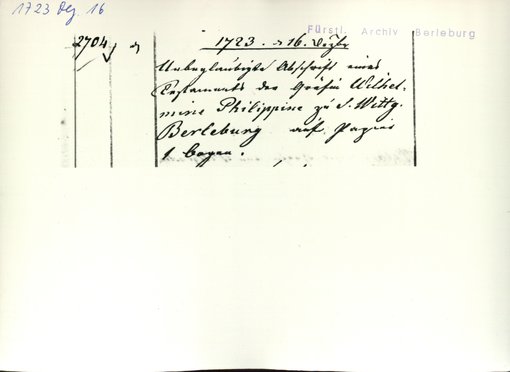 1723 Dez. 16
Fürstl. Archiv Berleburg
2704.
1723. d 16. Dezbr
Unbeglaubigte Abschrift eines
Testaments der Gräfin Wilhel-
mine Philippine zu S. Wittg.
Berleburg auf Papier
1 Bogen.